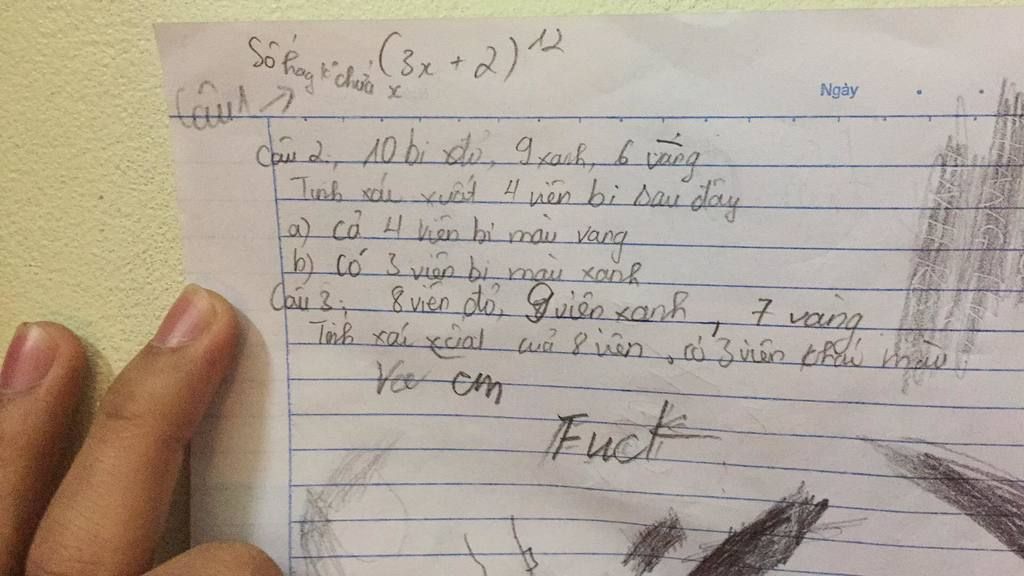 Số hạng kº chứa x (3x + 2)^12
Ngày
Câu 1 →
Câu 2:, 10 bi đỏ, 9 xanh, 6 vàng
Tính xác xuất 4 viên bi sau đây
a) Cả 4 viên bi màu vang
b) Có 3 viên bi màu xanh
Câu 3: 8 viên đỏ, 9 viên xanh, 7 vàng
Tính xác xuất của 8 viên, có 3 viên khác màu
cm
Fuck